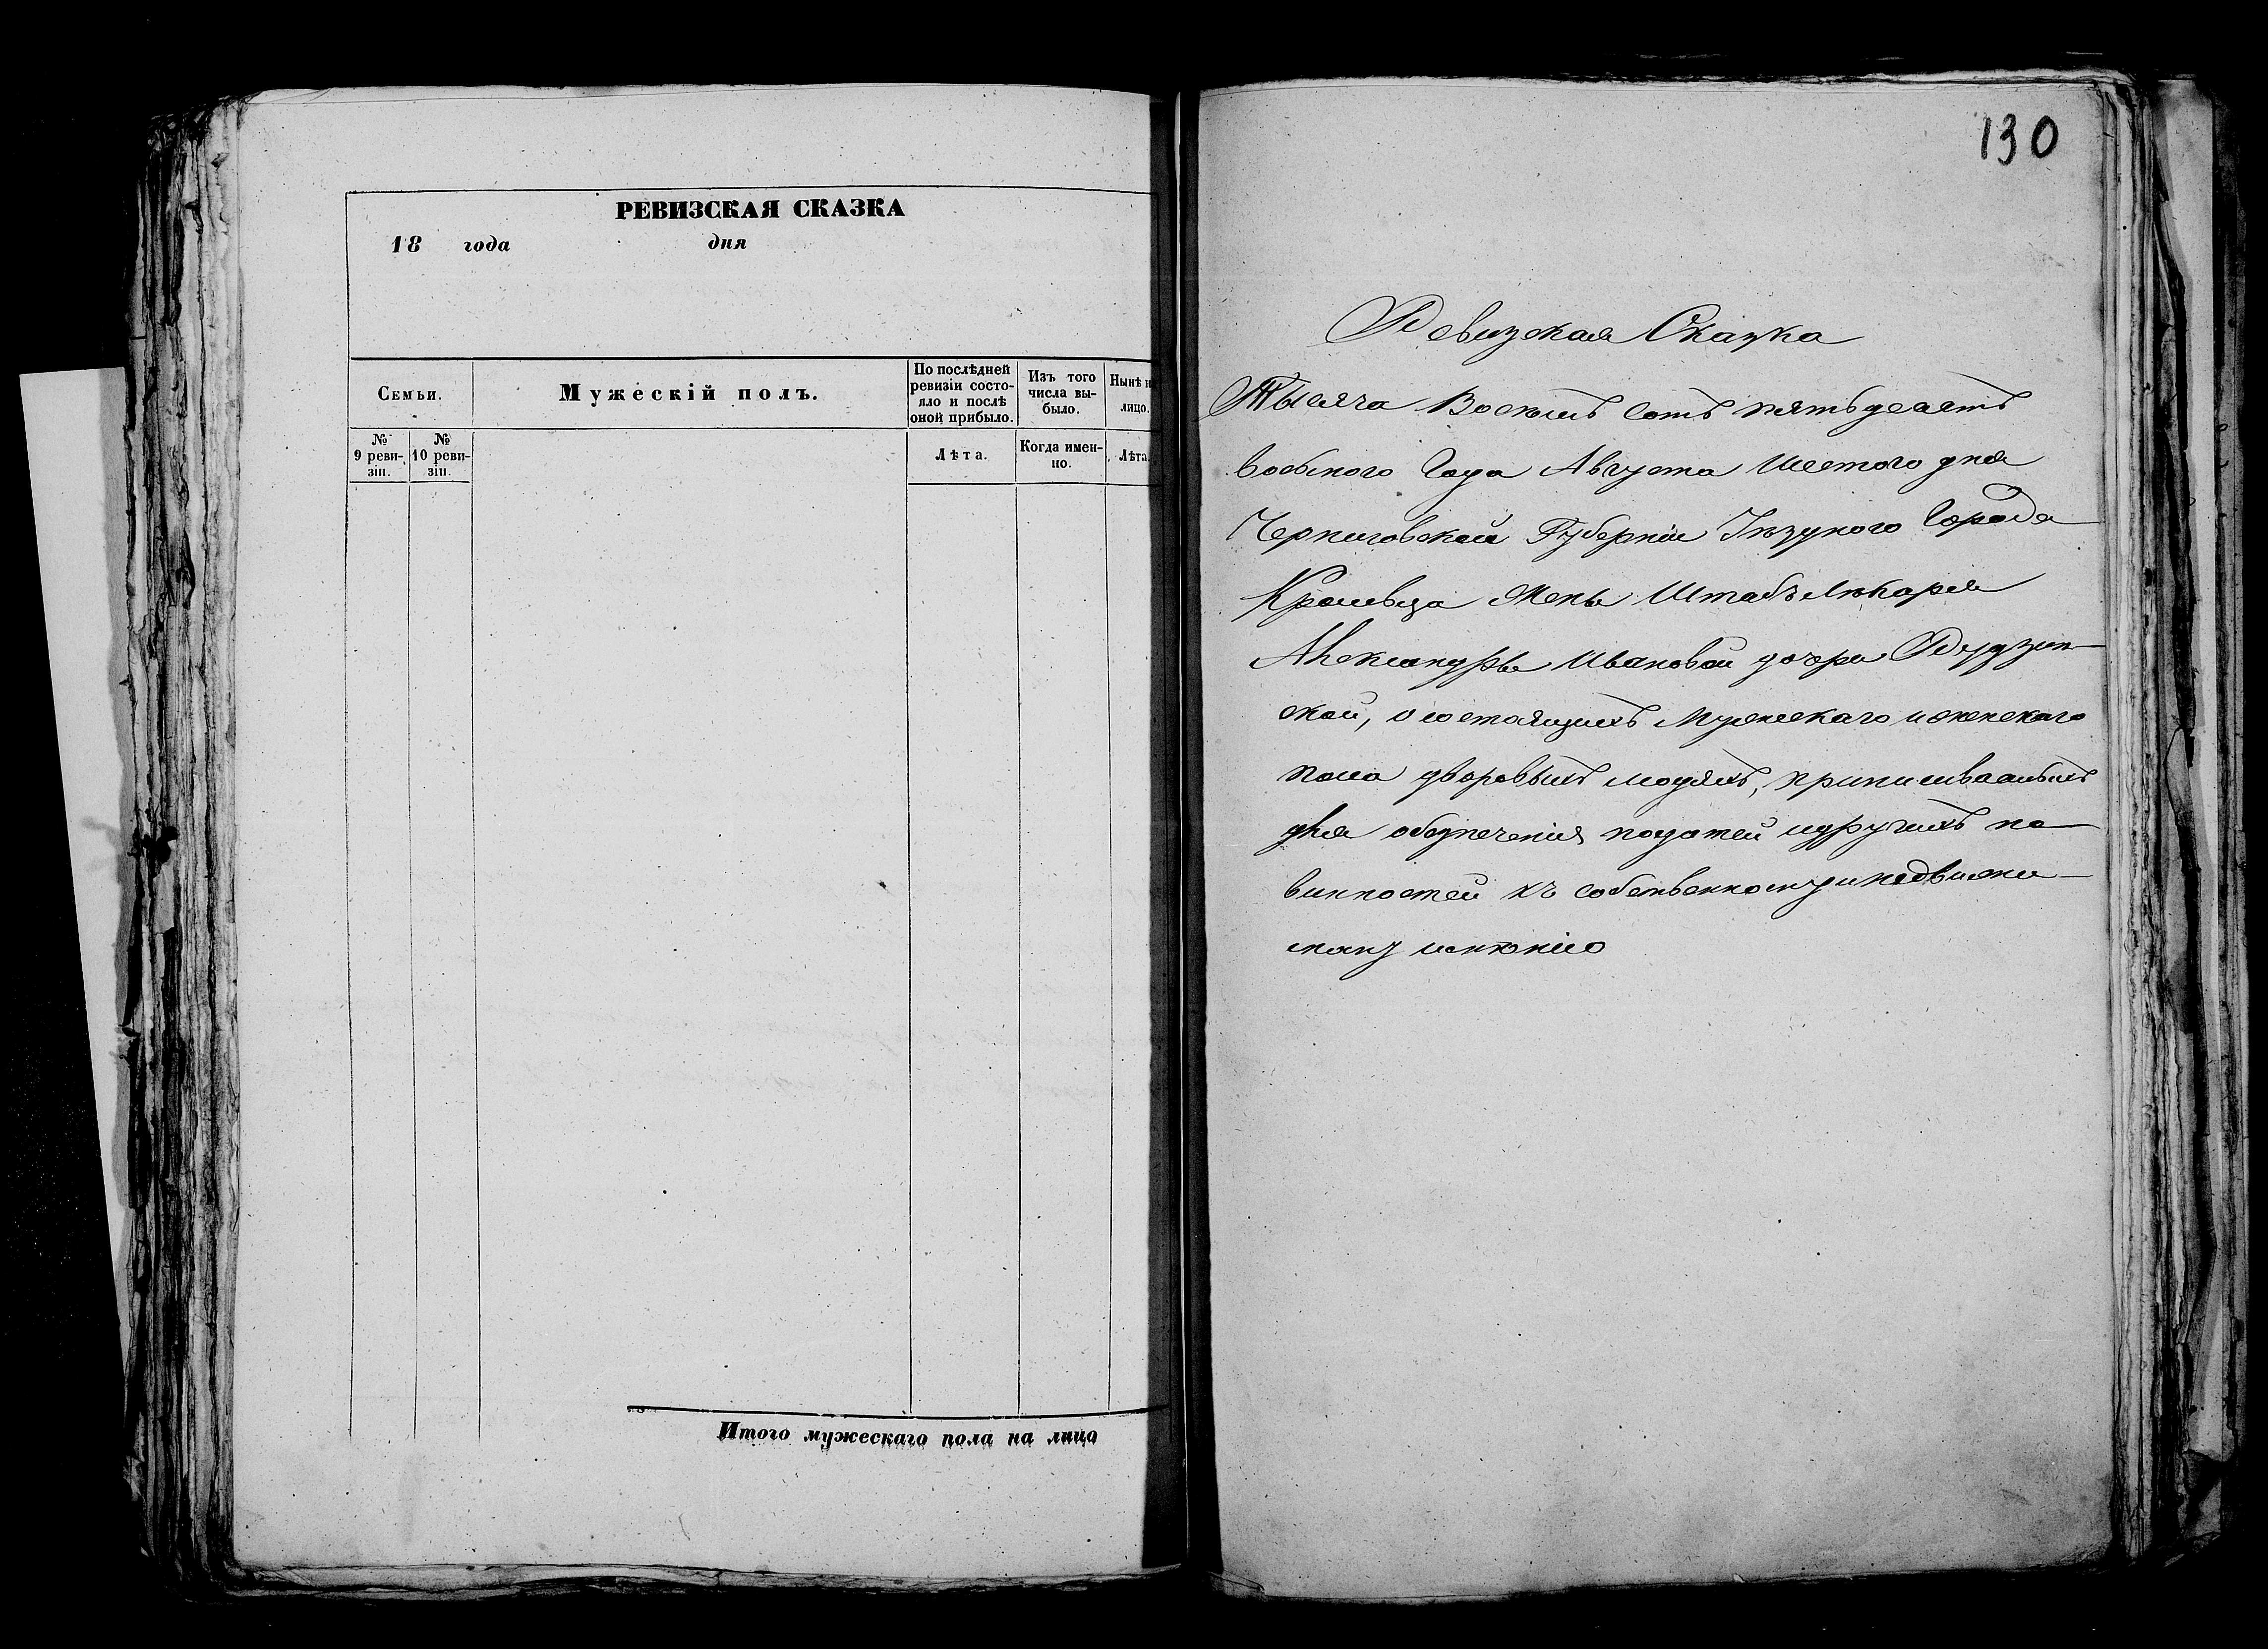 РЕВИЗСКАЯ СКАЗКА
18 года дня
Семьи.
Мужескій полъ.
По послѣдней ревизіи состояло и послѣ оной прибыло.
Изъ того числа выбыло.
Нынѣ н
лицо.
№ 9 ревизіи.
№ 10 ревизіи.
Лѣта.
Когда именно.
Лѣта
Итого мужескаго пола на лицо
130
Ревизская Сказка
Тысяча Восемь сотъ пятьдесятъ
восьмого Года Августа Шестого дня
Черниговской Губерніи Уѣзднаго Города
Кролевца жены Штабъ Лѣкаря
Александры Ивановой дочери Рудзин-
ской, о состоящихъ мужескаго и женскаго
пола дворовыхъ людяхъ, приписываемыхъ
для обезпеченія податей и другихъ по-
винностей къ собственному недвижи-
мому имѣнію